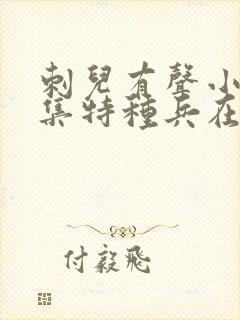 刺兒有聲小
集特種兵在
付毅飛